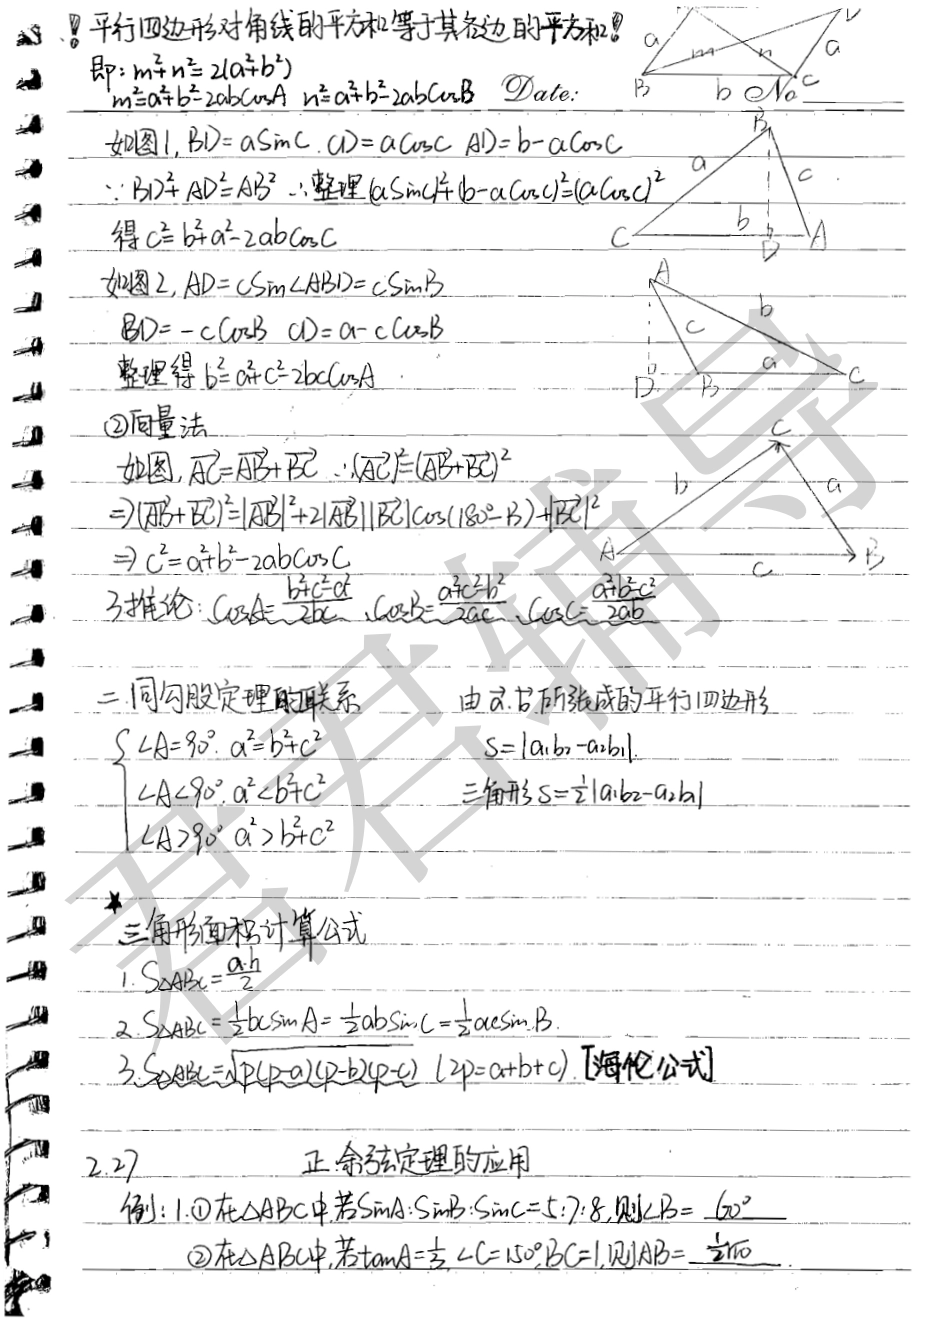 ！平行四边形对角线的平方和等于其各边的平方和！
即：m²+n²=2(a²+b²)
m²=a²+b²-2abCosA n²=a²+b²-2abCosB Date:
No
a m n a
B b C D
如图1, BD=aSinC. CD=aCosC AD=b-aCosC
∵BD²+AD²=AB² ∴整理(aSinC)²+(b-aCosC)²=(aCosC)²
得c²=b²+a²-2abCosC
B a c C b D A
如图2, AD=cSin∠ABD=cSinB
BD=-cCosB CD=a-cCosB
整理得b²=a²+c²-2bcCosA
A c b D B a C
②向量法
如图, AC⃗=AB⃗+BC⃗ ∴(AC⃗)²=(AB⃗+BC⃗)²
⇒(AB⃗+BC⃗)²=|AB⃗|²+2|AB⃗||BC⃗|Cos(180°-B)+|BC⃗|²
⇒c²=a²+b²-2abCosC
C b a A c B
3推论: CosA=(b²+c²-a²)/2bc、CosB=(a²+c²-b²)/2ac、CosC=(a²+b²-c²)/2ab
二.同勾股定理的联系
{∠A=90°. a²=b²+c²
∠A<90°. a²<b²+c²
∠A>90° a²>b²+c²
由a⃗.b⃗所张成的平行四边形
S=|a₁b₂-a₂b₁|.
三角形S=½|a₁b₂-a₂b₁|
★
三角形面积计算公式
1. S△ABC=a·h/2
2. S△ABC=½bcsinA=½absinC=½acsinB.
3. S△ABC=√p(p-a)(p-b)(p-c) (2p=a+b+c). [海伦公式]
2.27 正.余弦定理的应用
例: 1.①在△ABC中,若SinA:SinB:SinC=5:7:8,则∠B= 60°
②在△ABC中,若tanA=⅓,∠C=150°,BC=1,则AB= ½√10
君君辅导